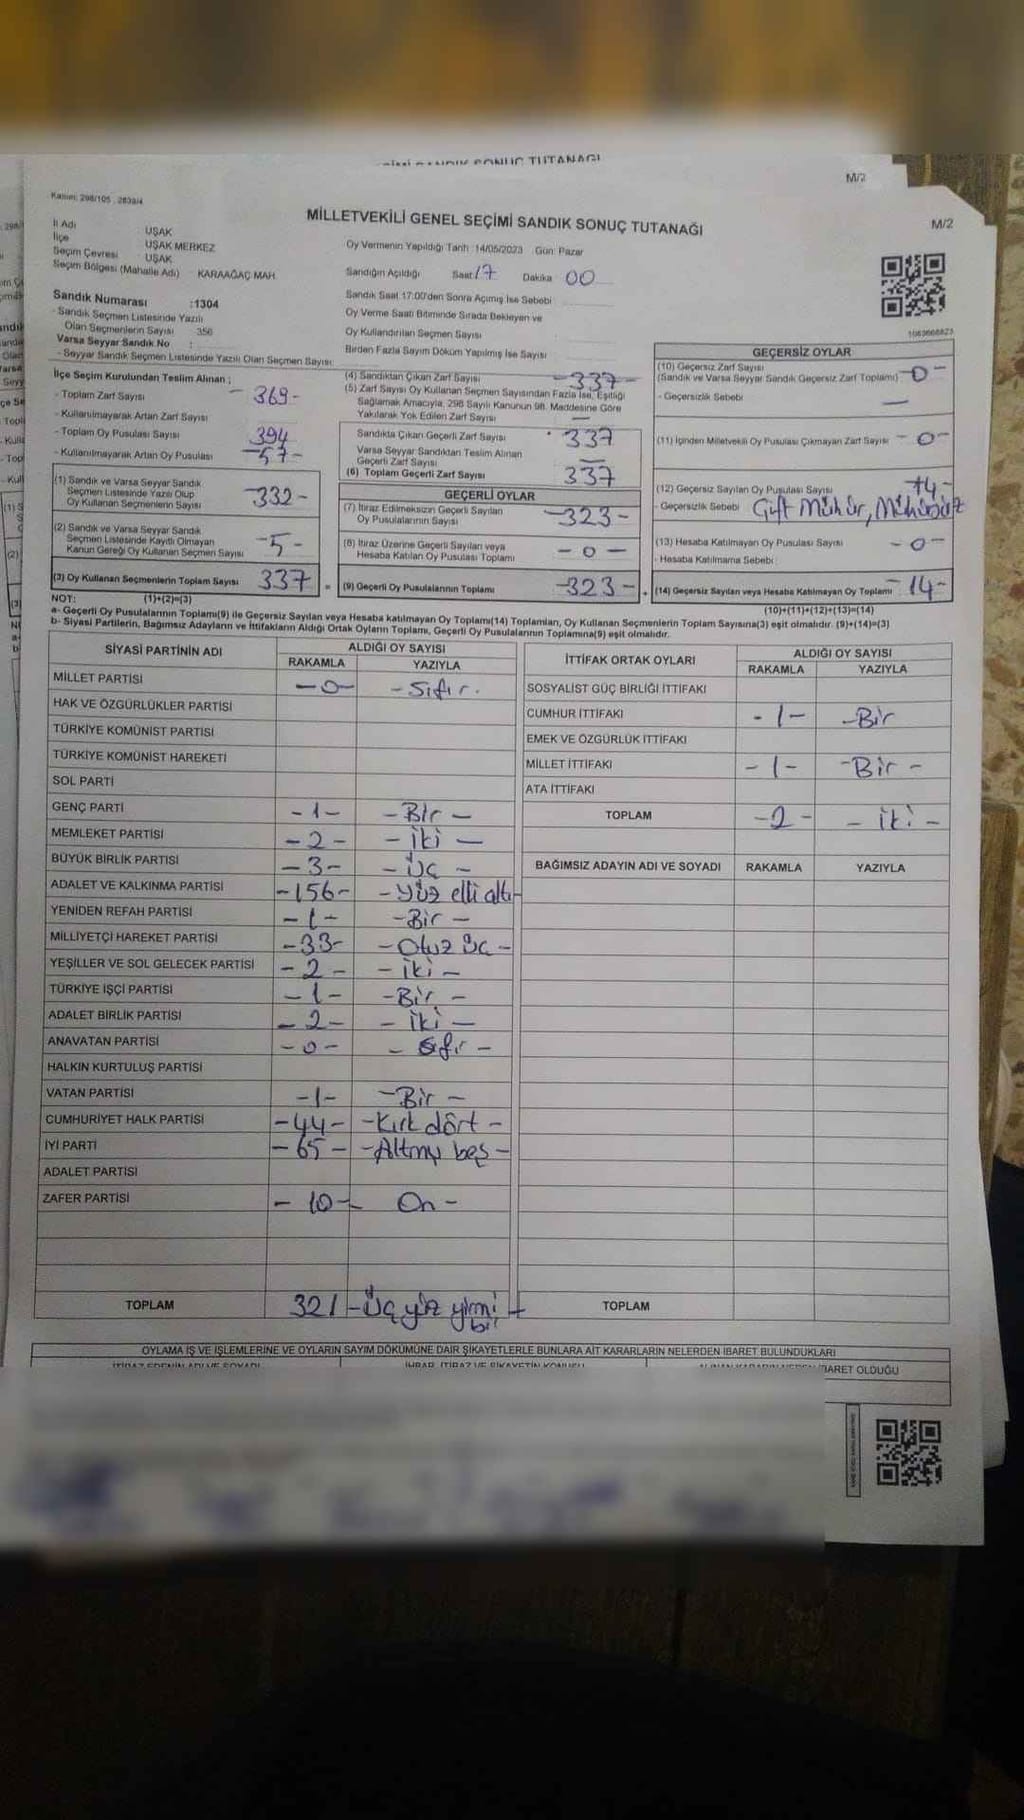 M/2
Kanun: 298/105 , 2839/4
MİLLETVEKİLİ GENEL SEÇİMİ SANDIK SONUÇ TUTANAĞI
M/2
İl Adı UŞAK
İlçe UŞAK MERKEZ
Seçim Çevresi UŞAK
Seçim Bölgesi (Mahalle Adı) KARAAĞAÇ MAH.
Oy Vermenin Yapıldığı Tarih :14/05/2023 Gün: Pazar
Sandığın Açıldığı Saat 17 Dakika 00
Sandık Saat 17:00'den Sonra Açılmış İse Sebebi
Oy Verme Saati Bitiminde Sırada Bekleyen ve
Oy Kullandırılan Seçmen Sayısı
Birden Fazla Sayım Döküm Yapılmış İse Sayısı
Sandık Numarası :1304
- Sandık Seçmen Listesinde Yazılı
Olan Seçmenlerin Sayısı 356
Varsa Seyyar Sandık No :
- Seyyar Sandık Seçmen Listesinde Yazılı Olan Seçmen Sayısı:
İlçe Seçim Kurulundan Teslim Alınan ;
- Toplam Zarf Sayısı - 369-
- Kullanılmayarak Artan Zarf Sayısı
- Toplam Oy Pusulası Sayısı 394
- Kullanılmayarak Artan Oy Pusulası -57-
(1) Sandık ve Varsa Seyyar Sandık
Seçmen Listesinde Yazılı Olup
Oy Kullanan Seçmenlerin Sayısı -332-
(2) Sandık ve Varsa Seyyar Sandık
Seçmen Listesinde Kayıtlı Olmayan
Kanun Gereği Oy Kullanan Seçmen Sayısı -5-
(3) Oy Kullanan Seçmenlerin Toplam Sayısı 337
(4) Sandıktan Çıkan Zarf Sayısı -337-
(5) Zarf Sayısı Oy Kullanan Seçmen Sayısından Fazla İse, Eşitliği
Sağlamak Amacıyla, 298 Sayılı Kanunun 98. Maddesine Göre
Yakılarak Yok Edilen Zarf Sayısı —
Sandıkta Çıkan Geçerli Zarf Sayısı 337
Varsa Seyyar Sandıktan Teslim Alınan
Geçerli Zarf Sayısı —
(6) Toplam Geçerli Zarf Sayısı 337
GEÇERLİ OYLAR
(7) İtiraz Edilmeksizin Geçerli Sayılan
Oy Pusulalarının Sayısı -323-
(8) İtiraz Üzerine Geçerli Sayılan veya
Hesaba Katılan Oy Pusulası Toplamı - 0 -
(9) Geçerli Oy Pusulalarının Toplamı -323-
GEÇERSİZ OYLAR
(10) Geçersiz Zarf Sayısı
(Sandık ve Varsa Seyyar Sandık Geçersiz Zarf Toplamı) - 0 -
- Geçersizlik Sebebi —
(11) İçinden Milletvekili Oy Pusulası Çıkmayan Zarf Sayısı - 0-
(12) Geçersiz Sayılan Oy Pusulası Sayısı 14-
- Geçersizlik Sebebi Çift Mühür, Mühürsüz
(13) Hesaba Katılmayan Oy Pusulası Sayısı - 0-
- Hesaba Katılmama Sebebi :
(14) Geçersiz Sayılan veya Hesaba Katılmayan Oy Toplamı -14-
NOT: (1)+(2)=(3)
(10)+(11)+(12)+(13)=(14)
a- Geçerli Oy Pusulalarının Toplamı(9) ile Geçersiz Sayılan veya Hesaba katılmayan Oy Toplamı(14) Toplamları, Oy Kullanan Seçmenlerin Toplam Sayısına(3) eşit olmalıdır. (9)+(14)=(3)
b- Siyasi Partilerin, Bağımsız Adayların ve İttifakların Aldığı Ortak Oyların Toplamı, Geçerli Oy Pusulalarının Toplamına(9) eşit olmalıdır.
SİYASİ PARTİNİN ADI ALDIĞI OY SAYISI
RAKAMLA YAZIYLA
MİLLET PARTİSİ -0- -Sıfır.
HAK VE ÖZGÜRLÜKLER PARTİSİ
TÜRKİYE KOMÜNİST PARTİSİ
TÜRKİYE KOMÜNİST HAREKETİ
SOL PARTİ
GENÇ PARTİ -1- -Bir -
MEMLEKET PARTİSİ -2- - İki -
BÜYÜK BİRLİK PARTİSİ -3- - Üç -
ADALET VE KALKINMA PARTİSİ -156- - Yüz elli altı-
YENİDEN REFAH PARTİSİ -1- -Bir -
MİLLİYETÇİ HAREKET PARTİSİ -33- -Otuz üç -
YEŞİLLER VE SOL GELECEK PARTİSİ - 2 - - İki -
TÜRKİYE İŞÇİ PARTİSİ -1- -Bir -
ADALET BİRLİK PARTİSİ - 2- - İki -
ANAVATAN PARTİSİ -0- - Sıfır -
HALKIN KURTULUŞ PARTİSİ
VATAN PARTİSİ -1- -Bir -
CUMHURİYET HALK PARTİSİ -44- -Kırk dört -
İYİ PARTİ - 65 - -Altmış beş -
ADALET PARTİSİ
ZAFER PARTİSİ - 10- On -
TOPLAM 321 -Üç yüz yirmi bir -
İTTİFAK ORTAK OYLARI ALDIĞI OY SAYISI
RAKAMLA YAZIYLA
SOSYALİST GÜÇ BİRLİĞİ İTTİFAKI
CUMHUR İTTİFAKI -1- -Bir
EMEK VE ÖZGÜRLÜK İTTİFAKI
MİLLET İTTİFAKI -1- -Bir -
ATA İTTİFAKI
TOPLAM -2- - İki -
BAĞIMSIZ ADAYIN ADI VE SOYADI RAKAMLA YAZIYLA
TOPLAM
OYLAMA İŞ VE İŞLEMLERİNE VE OYLARIN SAYIM DÖKÜMÜNE DAİR ŞİKAYETLERLE BUNLARA AİT KARARLARIN NELERDEN İBARET BULUNDUKLARI